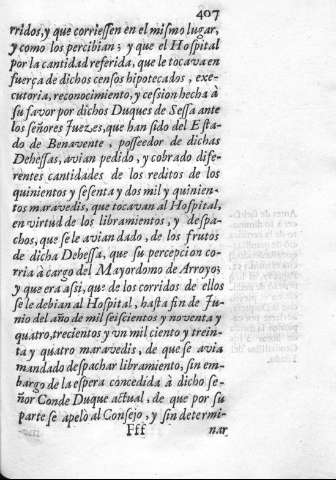 407
rridos, y que corriessen en el mismo lugar,
y como los percibian; y que el Hospital
por la cantidad referida, que le tocava en
fuerça de dichos censos hipotecados, exe-
cutoria, reconocimiento, y cession hecha à
su favor por dichos Duques de Sessa ante
los señores Juezes, que han sido del Esta-
do de Benavente, posseedor de dichas
Dehessas, avian pedido, y cobrado dife-
rentes cantidades de los reditos de los
quinientos y sesenta y dos mil y quinien-
tos maravedis, que tocavan al Hospital,
en virtud de los libramientos, y despa-
chos, que se le avian dado, de los frutos
de dicha Dehessa, que su percepcion co-
rria à cargo del Mayordomo de Arroyo;
y que era assi, que de los corridos de ellos
se le debian al Hospital, hasta fin de Ju-
nio del año de mil seiscientos y noventa y
quatro, trecientos y vn mil ciento y trein-
ta y quatro maravedis, de que se avia
mandado despachar libramiento, sin em-
bargo de la espera concedida à dicho se-
ñor Conde Duque actual, de que por su
parte se apelò al Consejo, y sin determi-
Fff nar